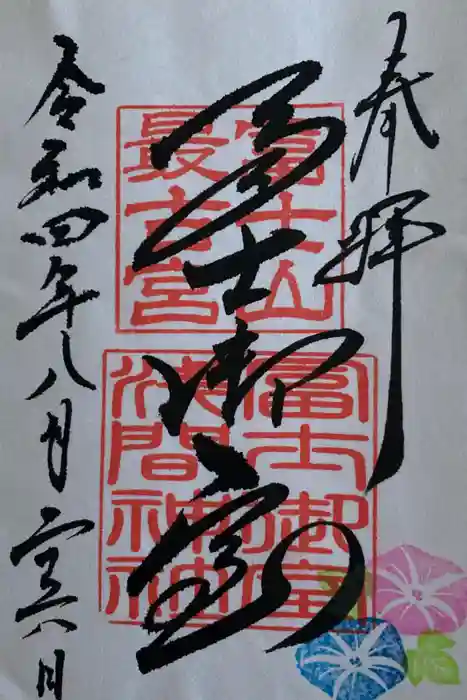 奉拝
富士山
最古宮
冨士御室
冨士御室
浅間神社
令和四年八月二十六日